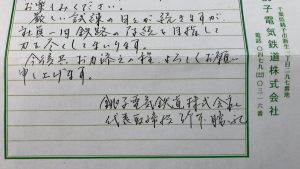 お楽しみください。
厳しい試練の日々が続きますが、
社員一同 鉄路の存続を目指して
力を尽くしてまいります。
今後共 お力添えの程、よろしくお願い
申し上げます。
銚子電気鉄道株式会社
代表取締役
千葉県銚子市新生町二丁目二九七番地
銚子電気鉄道株式会社
電話〇四七九(22)〇三一六番